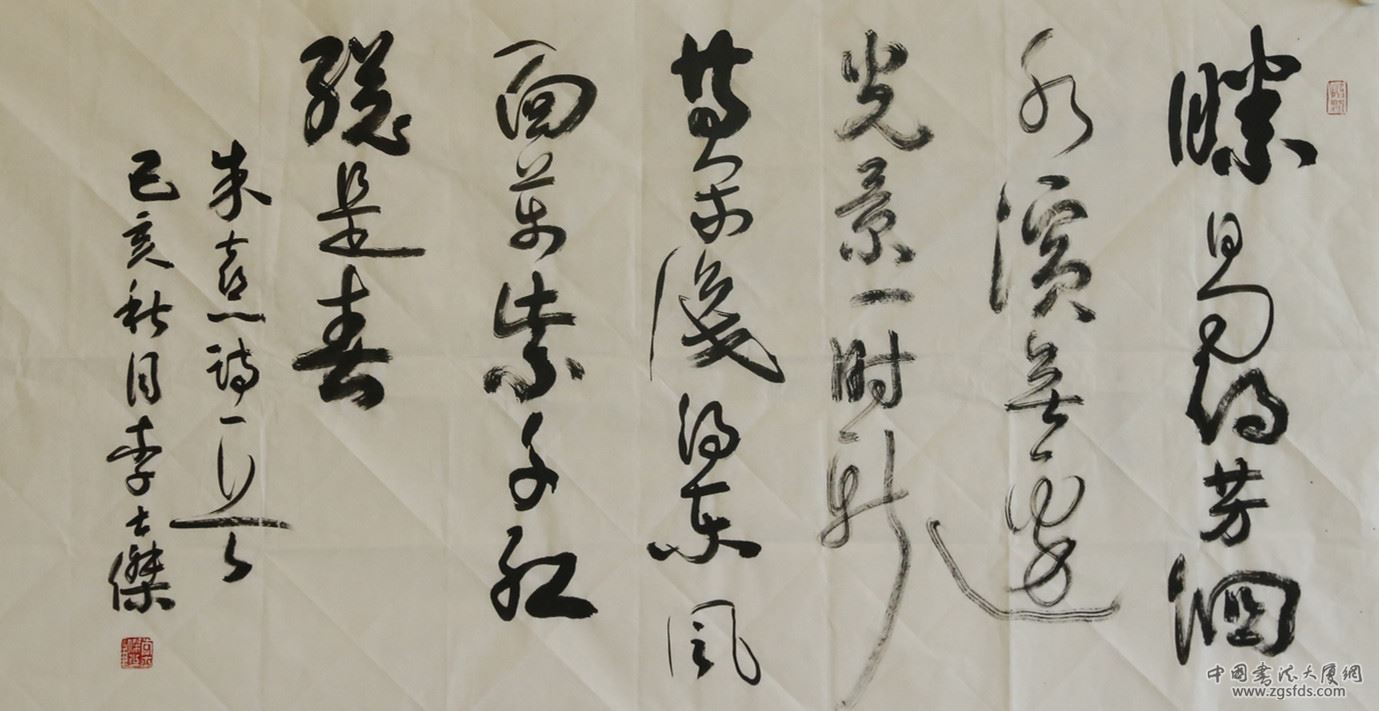 勝日尋芳泗
水濱無邊
光景一時新
等閑識得東風
面萬紫千紅
總是春
朱熹詩一首
己亥秋月李士傑
中國書法大廈網
www.zgsfds.com